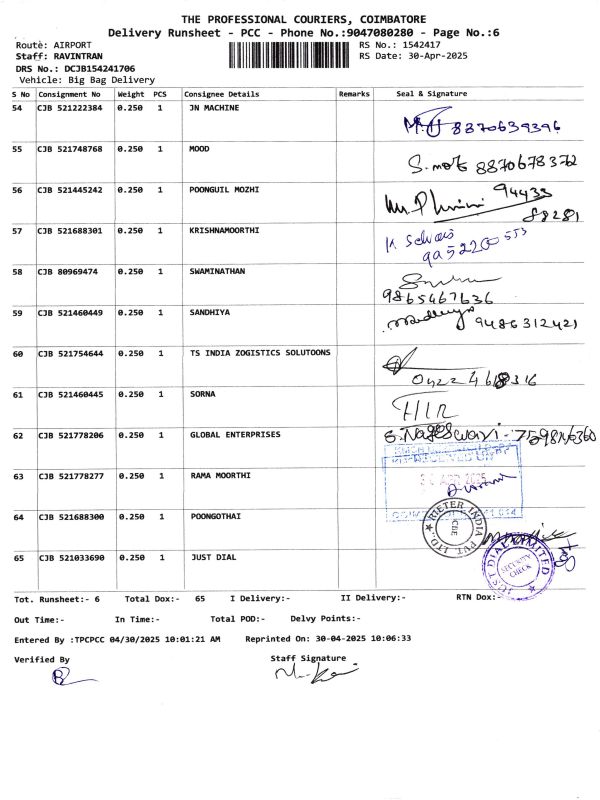 THE PROFESSIONAL COURIERS, COIMBATORE
Delivery Runsheet - PCC - Phone No.:9047080280 - Page No.:6
Route: AIRPORT RS No.: 1542417
Staff: RAVINTRAN RS Date: 30-Apr-2025
DRS No.: DCJB154241706
Vehicle: Big Bag Delivery
S No Consignment No Weight PCS Consignee Details Remarks Seal & Signature
54 CJB 521222384 0.250 1 JN MACHINE
8870639396
55 CJB 521748768 0.250 1 MOOD
8870678372
56 CJB 521445242 0.250 1 POONGUIL MOZHI
94433
88281
57 CJB 521688301 0.250 1 KRISHNAMOORTHI
K. Selvais
58 CJB 80969474 0.250 1 SWAMINATHAN
9865467636
59 CJB 521460449 0.250 1 SANDHIYA
9486312421
60 CJB 521754644 0.250 1 TS INDIA ZOGISTICS SOLUTOONS
61 CJB 521460445 0.250 1 SORNA
62 CJB 521778206 0.250 1 GLOBAL ENTERPRISES
S. Nageswari
63 CJB 521778277 0.250 1 RAMA MOORTHI
30 APR 2025
64 CJB 521688300 0.250 1 POONGOTHAI
RIETER INDIA PVT LTD.,
CBE
65 CJB 521033690 0.250 1 JUST DIAL
JUST DIAL LIMITED
SECURITY
CHECK
Tot. Runsheet:- 6 Total Dox:- 65 I Delivery:- II Delivery:- RTN Dox:-
Out Time:- In Time:- Total POD:- Delvy Points:-
Entered By :TPCPCC 04/30/2025 10:01:21 AM Reprinted On: 30-04-2025 10:06:33
Verified By Staff Signature